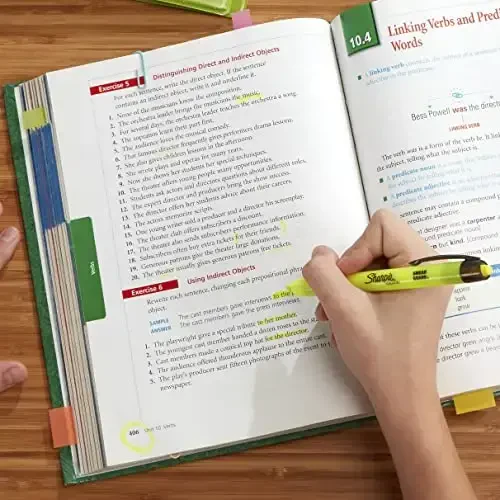 Exercise 5 Distinguishing Direct and Indirect Objects
For each sentence, write the direct object. If the sentence
contains an indirect object, write it and underline it.
1. None of the musicians knew the composition.
2. The orchestra leader brings the musicians the music.
3. For several days, the orchestra leader teaches the orchestra a song.
4. The sopranos learn their part first.
5. The audience loves the musical comedy.
6. That famous director frequently gives performers drama lessons.
7. She also gave children lessons in the afternoon.
8. She wrote plays and operas for many years.
9. Now she shows her students her special techniques.
10. The theater offers young people many opportunities.
11. Students ask actors and directors questions about different roles.
12. The expert director and producers bring the show success.
13. The director offers her students advice about their careers.
14. The actors memorize scripts.
15. One young writer sold a producer and a director his screenplay.
16. The theater club offers subscribers a discount.
17. The theater also sends subscribers performance information.
18. Subscribers often buy extra tickets for their friends.
19. Generous patrons give the theater large donations.
20. The theater usually gives generous patrons free tickets.
Exercise 6 Using Indirect Objects
Rewrite each sentence, changing each prepositional
SAMPLE The cast members gave interviews to the
ANSWER The cast members gave the press interviews.
1. The playwright gave a special tribute to her mother.
2. The youngest cast member handed a dozen roses to the
3. Cast members made a comical top hat for the director.
4. The audience offered thunderous applause to the entire cast.
5. The play's producer sent fifteen photographs of the event to
newspaper.
406 Unit 10 Verbs
Verbs
10.4 Linking Verbs and Pred
Words
A linking verb connects the subject of a sentence
adjective in the predicate.
Bess Powell was the direct
LINKING VERB
The verb was is a form of the verb be. It
the subject, telling what the subject is.
A predicate noun
A predicate adjective
Sentences may contain a compound
predicate adjective.
designer was a carpenter
und predicate noun]
kind. [compound
Sharpie
look
grow
of these verbs can be
director grew angry.
director grew a